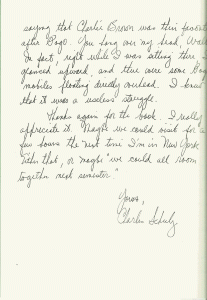 saying that Charlie Brown was their favorite
after Pogo. You hang over my head, Walt.
In fact, right while I was sitting there I
glanced upward, and there were some Pogo
mobiles floating directly overhead. I knew
that it was a useless struggle.
Thanks again for the book. I really
appreciate it. Maybe we could visit for a
few hours the next time I'm in New York
that, or maybe "we could all room
together next semester."
Yours,
Charles Schulz